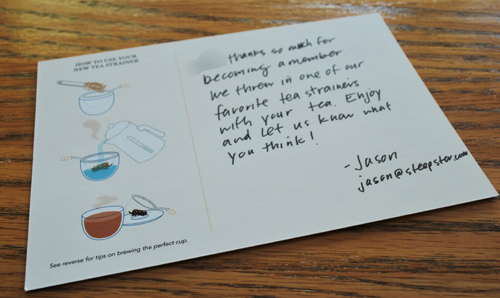 HOW TO USE YOUR
NEW TEA STRAINER
See reverse for tips on brewing the perfect cup.
thanks so much for
becoming a member.
We threw in one of our
favorite tea strainers
with your tea. Enjoy
and let us know what
you think!
-Jason
jason@steepster.com